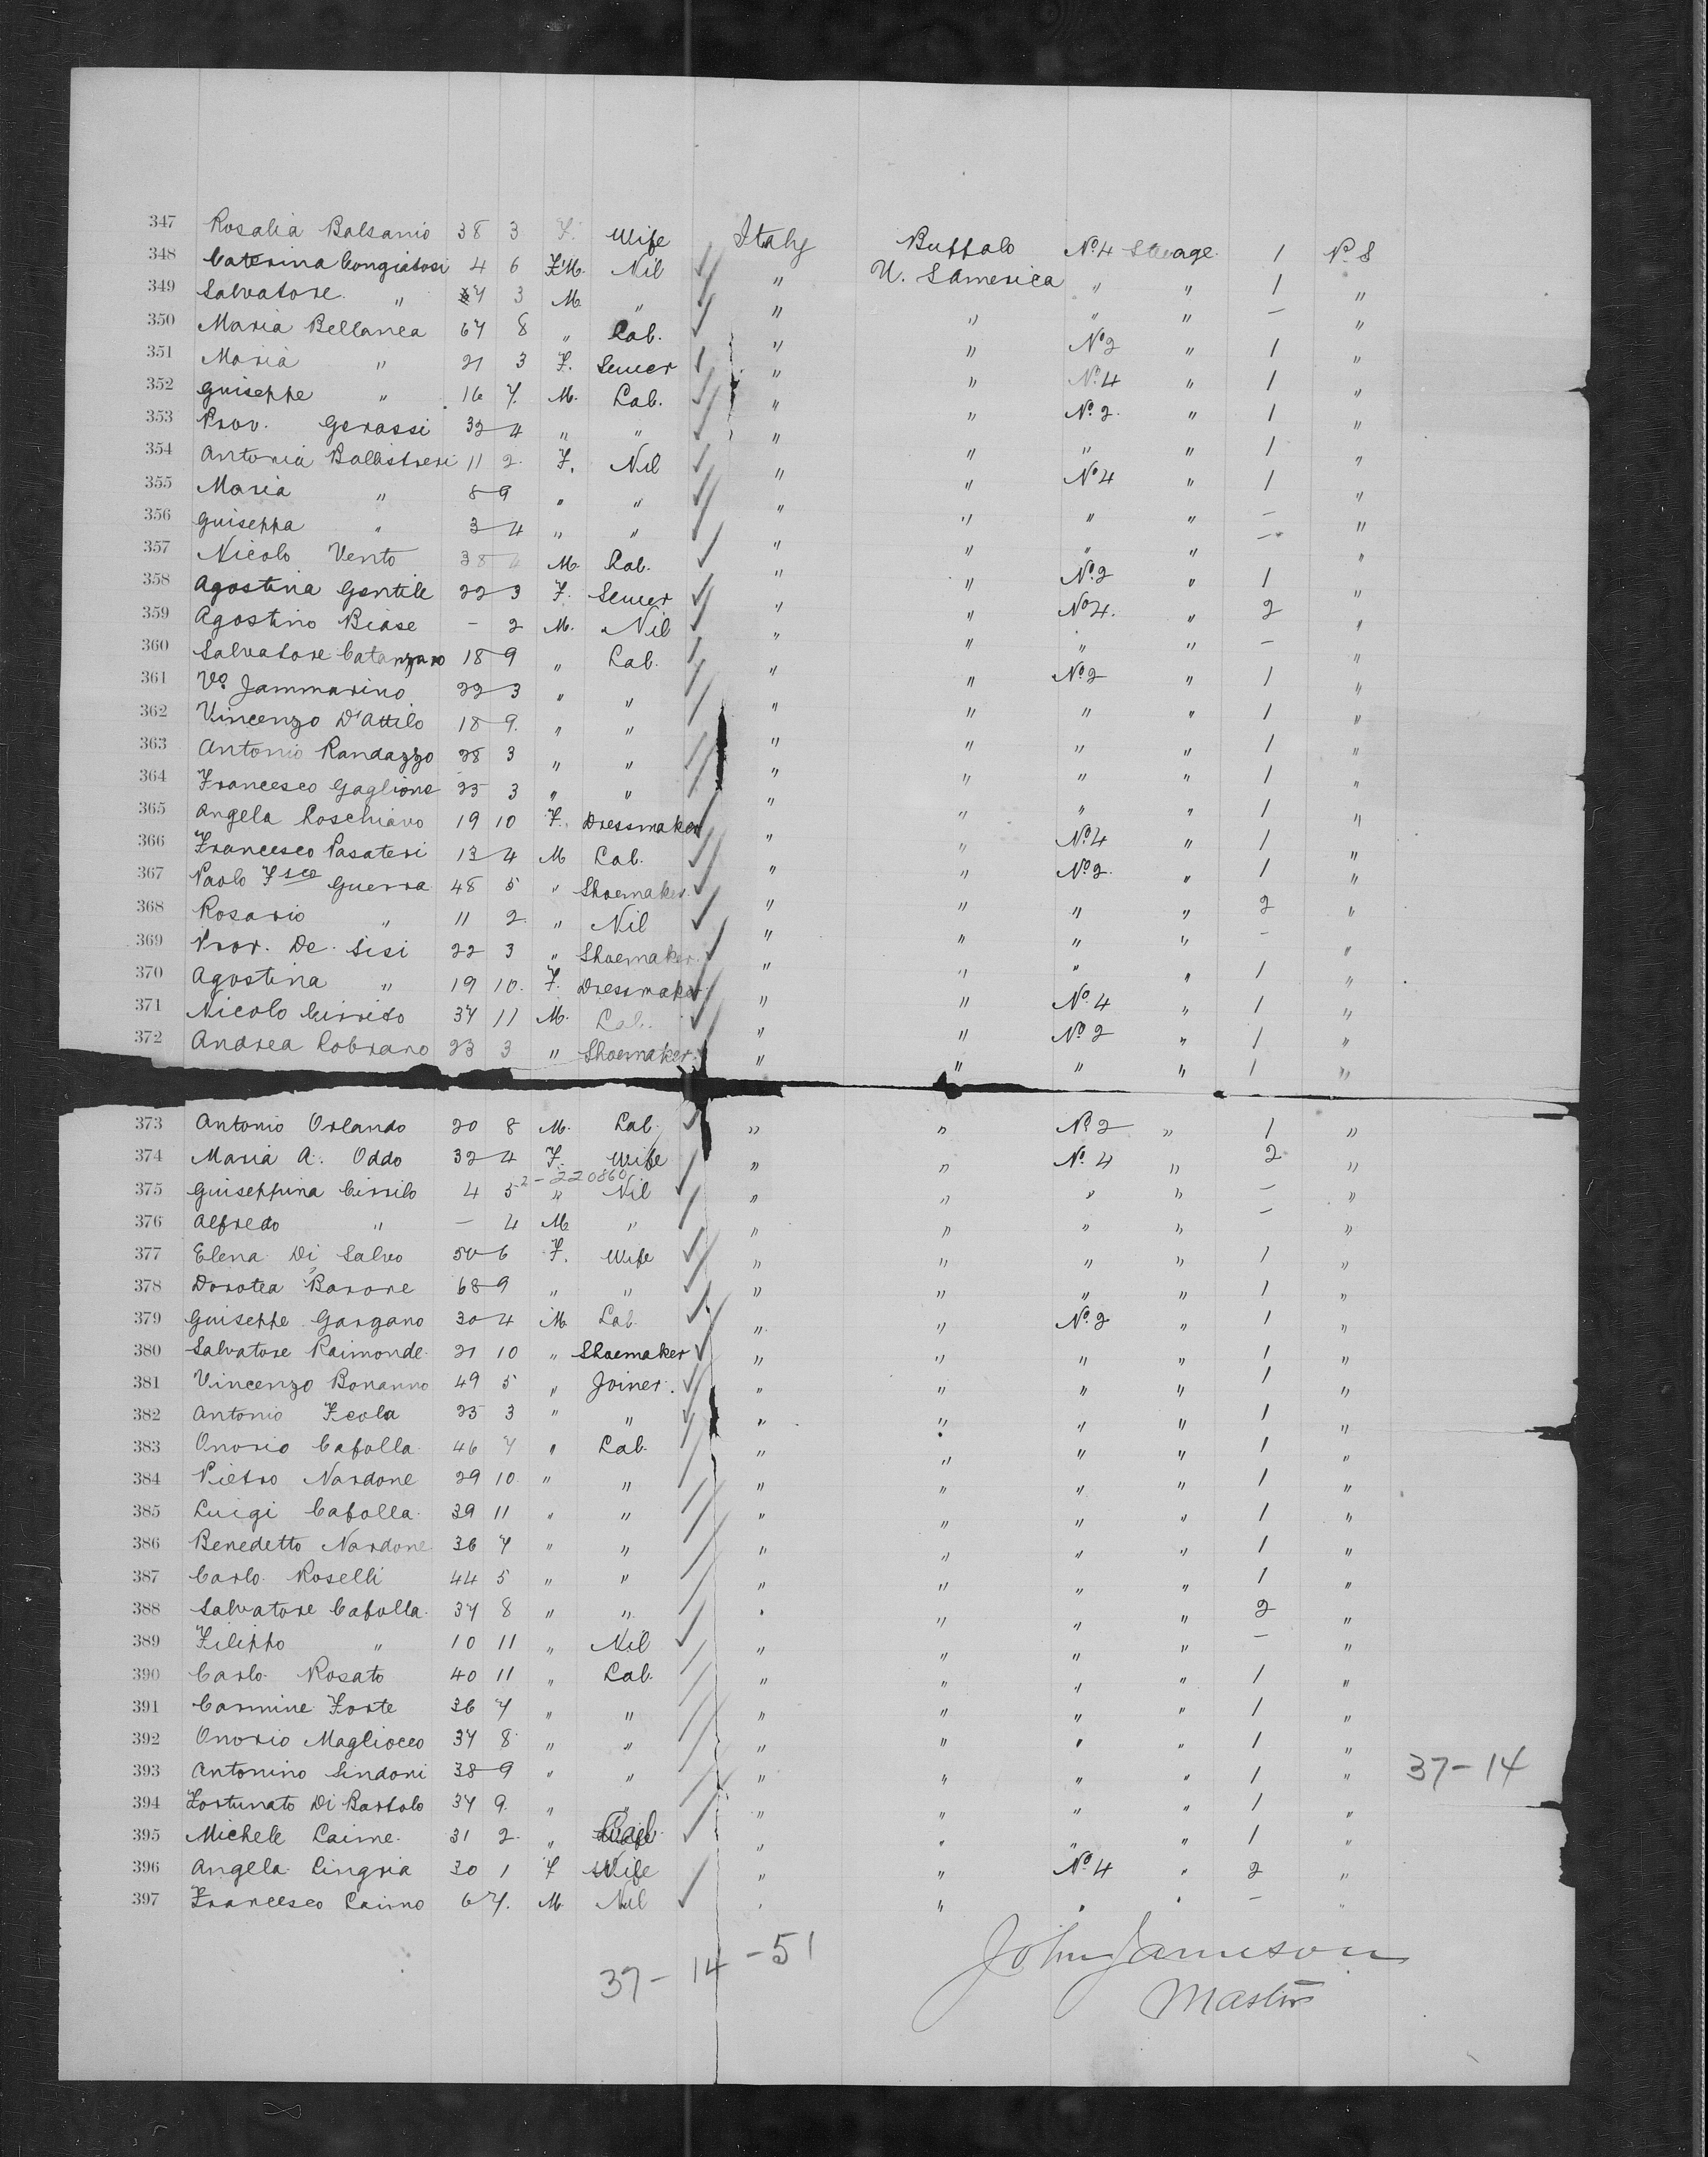 347 Rosalia Balsamo 38 3 F. Wife Italy Buffalo No. 4 Steerage 1 P. S
348 Caterina Congialosi 4 6 F. Nil " U. S America " " 1 "
349 Salvatore " 7 3 M " " " " " - "
350 Maria Bellanca 67 8 " Lab. " " No 2 " 1 "
351 Maria " 21 3 F. Sewer " " No. 4 " 1 "
352 Guiseppe " 16 7. M. Lab. " " No. 2. " 1 "
353 Prov. Gerassi 32 4 " " " " " " 1 "
354 Antonia Ballistreri 11 2. F. Nil " " No 4 " 1 "
355 Maria " 8 9 " " " " " " - "
356 Guiseppa " 3 4 " " " " " " - "
357 Nicolo Vento 38 4 M. Lab. " " No. 2 " 1 "
358 Agostina Gentile 22 3 F. Sewer " " No 4. " 2 "
359 Agostino Biase - 2 M. Nil " " " " - "
360 Salvatore Catanzaro 18 9 " Lab. " " No. 2 " 1 "
361 Vo. Jammarino 22 3 " " " " " " 1 "
362 Vincenzo D'Attilo 18 9. " " " " " " 1 "
363 Antonio Randazzo 28 3 " " " " " " 1 "
364 Francesco Gaglione 25 3 " " " " " " 1 "
365 Angela Loschiavo 19 10 F. Dressmaker " " No. 4 " 1 "
366 Francesco Pasateri 13 4 M Lab. " " No. 2. " 1 "
367 Paolo Fsco Guerra 48 5 " Shoemaker. " " " " 2 "
368 Rosario " 11 2. " Nil " " " " - "
369 Prov. De. Sisi 22 3 " Shoemaker. " " " " 1 "
370 Agostina " 19 10. F. Dressmaker. " " No. 4 " 1 "
371 Nicolo Cirrito 37 11 M. Lab. " " No. 2 " 1 "
372 Andrea Lobrano 23 3 " Shoemaker. " " " " 1 "
373 Antonio Orlando 20 8 M. Lab. " " No 2 " 1 "
374 Maria A. Oddo 32 4 F. Wife " " No. 4 " 2 "
2-220860
375 Guiseppina Cirrilo 4 5 " Nil " " " " - "
376 Alfredo " - 4 M " " " " " - "
377 Elena Di Salvo 50 6 F. Wife " " " " 1 "
378 Dorotea Barone 68 9 " " " " " " 1 "
379 Guiseppe Gargano 30 4 M Lab. " " No. 2 " 1 "
380 Salvatore Raimonde. 21 10 " Shoemaker " " " " 1 "
381 Vincenzo Bonanno 49 5 " Joiner. " " " " 1 "
382 Antonio Scola 25 3 " " " " " " 1 "
383 Onorio Cafolla 46 7 " Lab. " " " " 1 "
384 Pietro Nardone 29 10. " " " " " " 1 "
385 Luigi Cafolla. 39 11 " " " " " " 1 "
386 Benedetto Nardone 36 7 " " " " " " 1 "
387 Carlo. Roselli 44 5 " " " " " " 1 "
388 Salvatore Cafolla. 37 8 " " " " " " 2 "
389 Filippo " 10 11 " Nil " " " " - "
390 Carlo. Rosato 40 11 " Lab. " " " " 1 "
391 Carmine Forte 36 7 " " " " " " 1 "
392 Onorio Magliocco 37 8. " " " " " " 1 "
393 Antonino Sindoni 38 9 " " " " " " 1 " 37-14
394 Fortunato Di Bartolo 37 9. " " " " " " 1 "
395 Michele Laime. 31 2. " " " " " 1 "
396 Angela Cingria 30 1 F Wife " " No. 4 " 2 "
397 Francesco Laimo 6 7. M Nil " " " " - "
37-14-51
John Jameson
Master